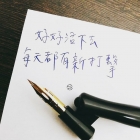 好好活下去
每天都有新打擊